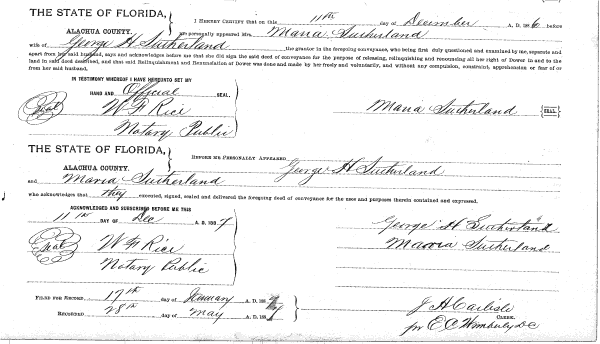 THE STATE OF FLORIDA,
ALACHUA COUNTY.
I HEREBY CERTIFY that on this 11th day of December A. D. 1886 before
me personally appeared Mrs. Maria Sutherland
wife of George H Sutherland the grantor in the foregoing conveyance, who being first duly questioned and examined by me, separate and
apart from her said husband, says and acknowledges before me that she did sign the said deed of conveyance for the purpose of releasing, relinquishing and renouncing all her right of Dower in and to the
land in said deed described, and that said Relinquishment and Renunciation of Dower was done and made by her freely and voluntarily, and without any compulsion, constraint, apprehension or fear of or
from her said husband.
IN TESTIMONY WHEREOF I HAVE HEREUNTO SET MY
HAND AND Official SEAL.
Seal W F Rice
Notary Public
Maria Sutherland {SEAL}
THE STATE OF FLORIDA,
ALACHUA COUNTY.
BEFORE ME PERSONALLY APPEARED George H Sutherland
and Maria Sutherland
who acknowledges that they executed, signed, sealed and delivered the foregoing deed of conveyance for the uses and purposes therein contained and expressed.
ACKNOWLEDGED AND SUBSCRIBED BEFORE ME THIS
11th DAY OF Dec A. D. 188
Seal W F Rice
Notary Public
George H Sutherland
Maria Sutherland
FILED FOR RECORD 17th day of January A. D. 188
RECORDED 28th day of May A. D. 188
J H Carlisle
CLERK.
for E C Wimberly DC